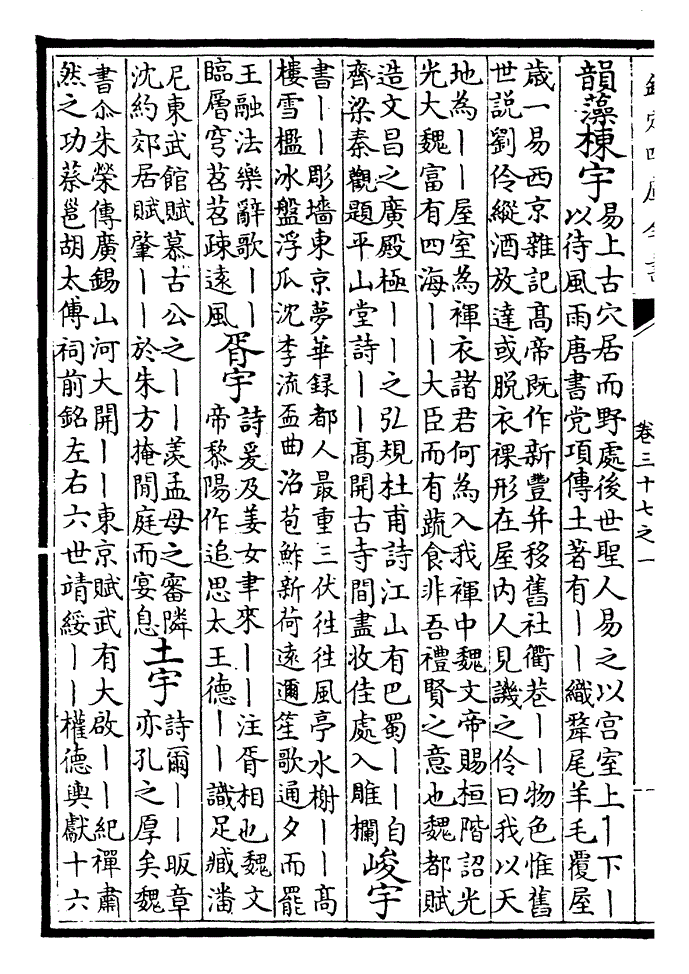 欽定四庫全書
卷三十七之一
韻藻棟宇
易上古穴居而野處後世聖人易之以宫室上丨下丨
以待風雨唐書党項傳土著有丨丨織犛尾羊毛覆屋
歲一易西京雜記髙帝既作新豐并移舊社衢巷丨丨物色惟舊
世説劉伶縱酒放達或脱衣裸形在屋内人見譏之伶曰我以天
地為丨丨屋室為褌衣諸君何為入我褌中魏文帝賜桓階詔光
光大魏富有四海丨丨大臣而有蔬食非吾禮賢之意也魏都賦
造文昌之廣殿極丨丨之弘規杜甫詩江山有巴蜀丨丨自
齊梁秦觀題平山堂詩丨丨髙開古寺間盡收佳處入雕欄
峻宇
書丨丨彫墻東京夢華録都人最重三伏往往風亭水榭丨丨髙
樓雪檻冰盤浮瓜沈李流盃曲沼苞鮓新荷遠邇笙歌通夕而罷
王融法樂辭歌丨丨
臨層穹苕苕疎遠風
胥宇
詩爰及姜女聿來丨丨注胥相也魏文
帝黎陽作追思太王德丨丨識足臧潘
尼東武館賦慕古公之丨丨羨孟母之審隣
沈約郊居賦肇丨丨於朱方掩閒庭而宴息
土宇
詩爾丨丨昄章
亦孔之厚矣魏
書尒朱榮傳廣錫山河大開丨丨東京賦武有大啟丨丨紀禪肅
然之功蔡邕胡太傅祠前銘左右六世靖綏丨丨權德輿獻十六